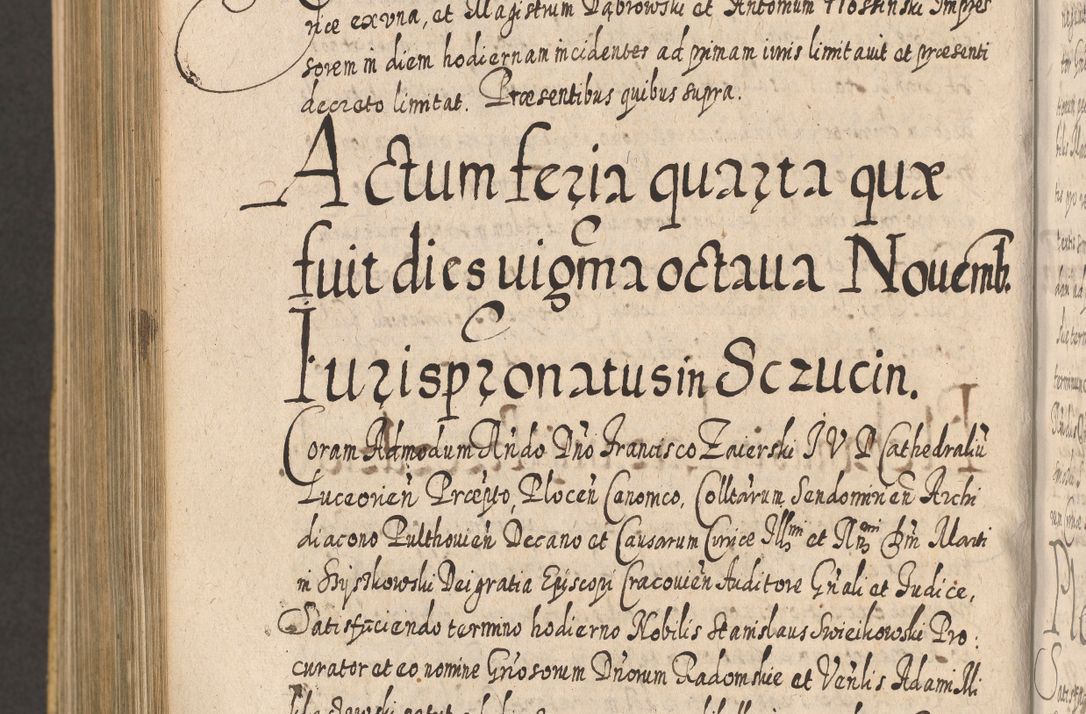 rice ex una, et Magistrum Dąbrowski et Antonium Hostinski Impres
sorem in diem hodiernam incidentes ad primam iuris limitauit et præsenti
decreto limitat. Præsentibus quibus supra.
Actum feria quarta quæ
fuit dies uigma octaua Nouemb.
Iuris pronatus in Sczucin.
Coram Admodum Rńdo Dńo Francisco Zaierski I V D Cathedraliū
Luceorień Præpto, Plocen̄ Canonico, Colltarum Sendomirień Archi
diacono Pulthouień Decano et Causarum Curiæ Illmi et Rmi Dńi Marti
ni Szyszkowski Dei gratia Episcopi Cracouień Auditore Gńali et Iudice,
Satisfaciendo termino hodierno Nobilis Stanislaus Swieikowski Pro:
curator et eo nomine Gńosorum Dńorum Radomskie et Veńlis Adami Mi